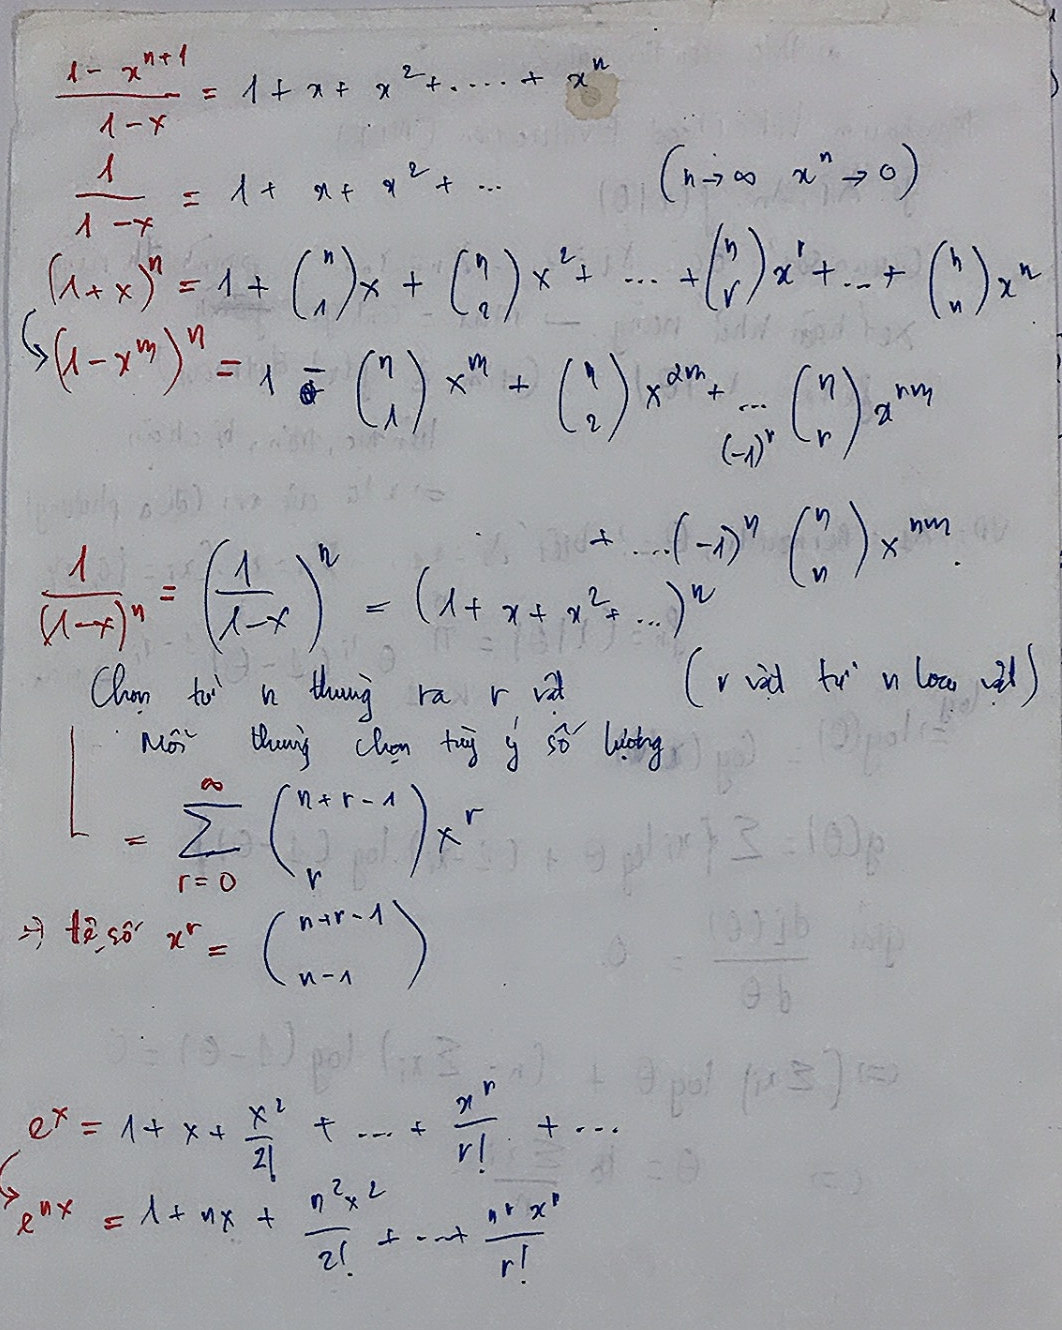 (1 - x^{n+1})/(1 - x) = 1 + x + x^2 + .... + x^n
1/(1 - x) = 1 + x + x^2 + ... (n → ∞ x^n → 0)
(1 + x)^n = 1 + (n 1)x + (n 2)x^2 + ... + (n r)x^r + ... + (n n)x^n
↳ (1 - x^m)^n = 1 - (n 1)x^m + (n 2)x^{2m} + ... (-1)^r (n r)x^{rm}
+ .... (-1)^n (n n)x^{nm}.
1/(1-x)^n = (1/(1-x))^n = (1 + x + x^2 + ...)^n
Chọn từ n thùng ra r vật (r vật từ n loại vật)
Mỗi thùng chọn tùy ý số lượng
= ∑_{r=0}^{∞} (n+r-1 r)x^r
=> hệ số x^r = (n+r-1 n-1)
e^x = 1 + x + x^2/2! + .... + x^r/r! + ...
↳ e^{nx} = 1 + nx + n^2x^2/2! + ... + n^r x^r/r!